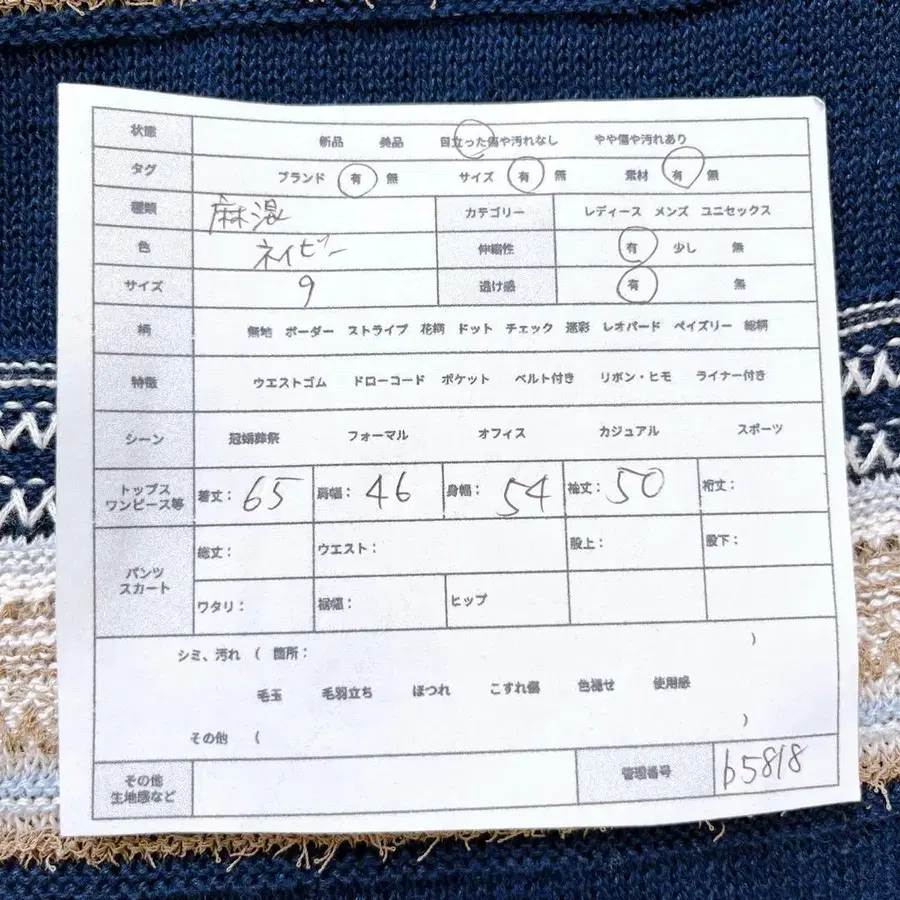 状態 新品 美品 目立った傷や汚れなし やや傷や汚れあり
タグ ブランド 有 無 サイズ 有 無 素材 有 無
種類 麻混 カテゴリー レディース メンズ ユニセックス
色 ネイビー 伸縮性 有 少し 無
サイズ 9 透け感 有 無
柄 無地 ボーダー ストライプ 花柄 ドット チェック 迷彩 レオパード ペイズリー 総柄
特徴 ウエストゴム ドローコード ポケット ベルト付き リボン・ヒモ ライナー付き
シーン 冠婚葬祭 フォーマル オフィス カジュアル スポーツ
トップス
ワンピース等 着丈: 65 肩幅: 46 身幅: 54 袖丈: 50 裄丈:
パンツ
スカート 総丈: ウエスト: 股上: 股下:
ワタリ: 裾幅: ヒップ
シミ、汚れ ( 箇所: )
毛玉 毛羽立ち ほつれ こすれ傷 色褪せ 使用感
その他 ( )
その他
生地感など 管理番号 b5818